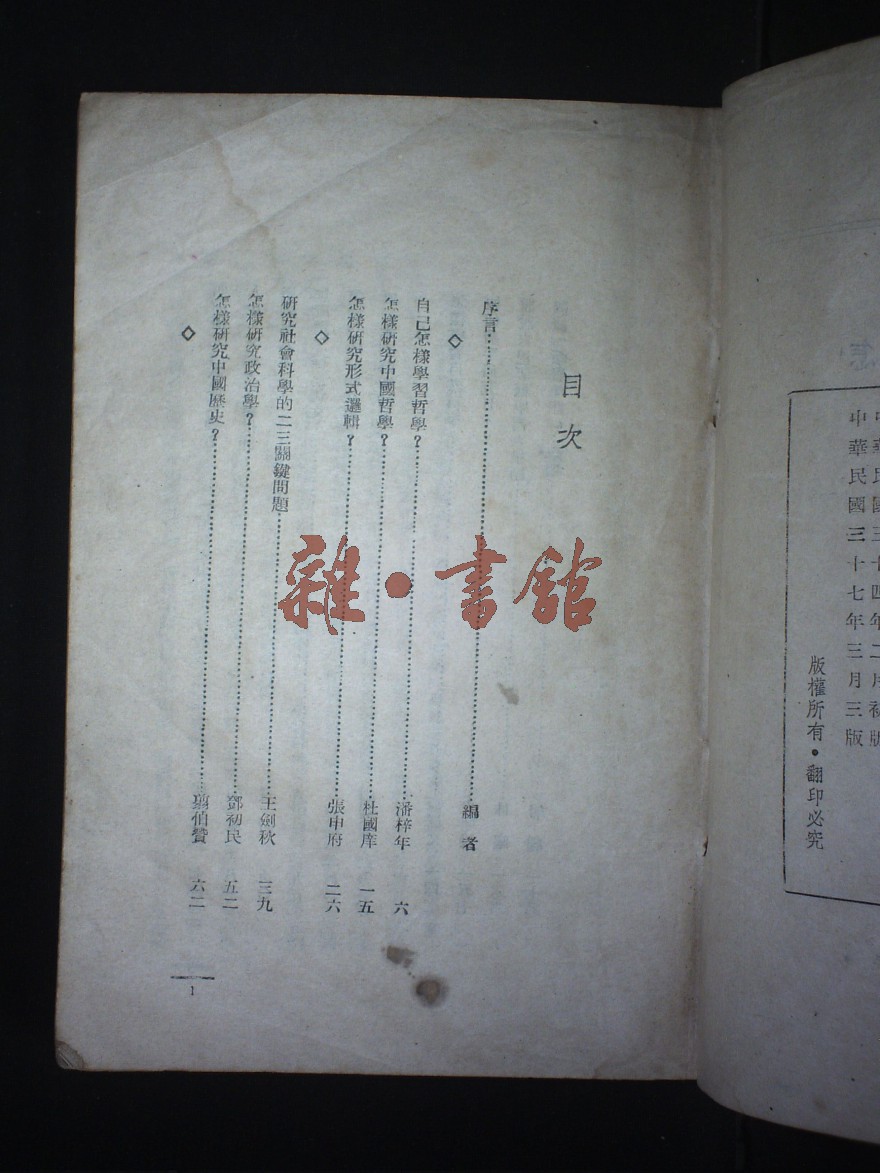 中華民國三十四年二月初版
中華民國三十七年三月三版
版權所有•翻印必究
目次
序言…………編者
◇
自己怎樣學習哲學？…………潘梓年 六
怎樣研究中國哲學？…………杜國庠 一五
怎樣研究形式邏輯？…………張申府 二六
◇
研究社會科學的二三關鍵問題…………王劍秋 三九
怎樣研究政治學？…………鄧初民 五二
怎樣研究中國歷史？…………翦伯贊 六二
◇
1
雜•書館